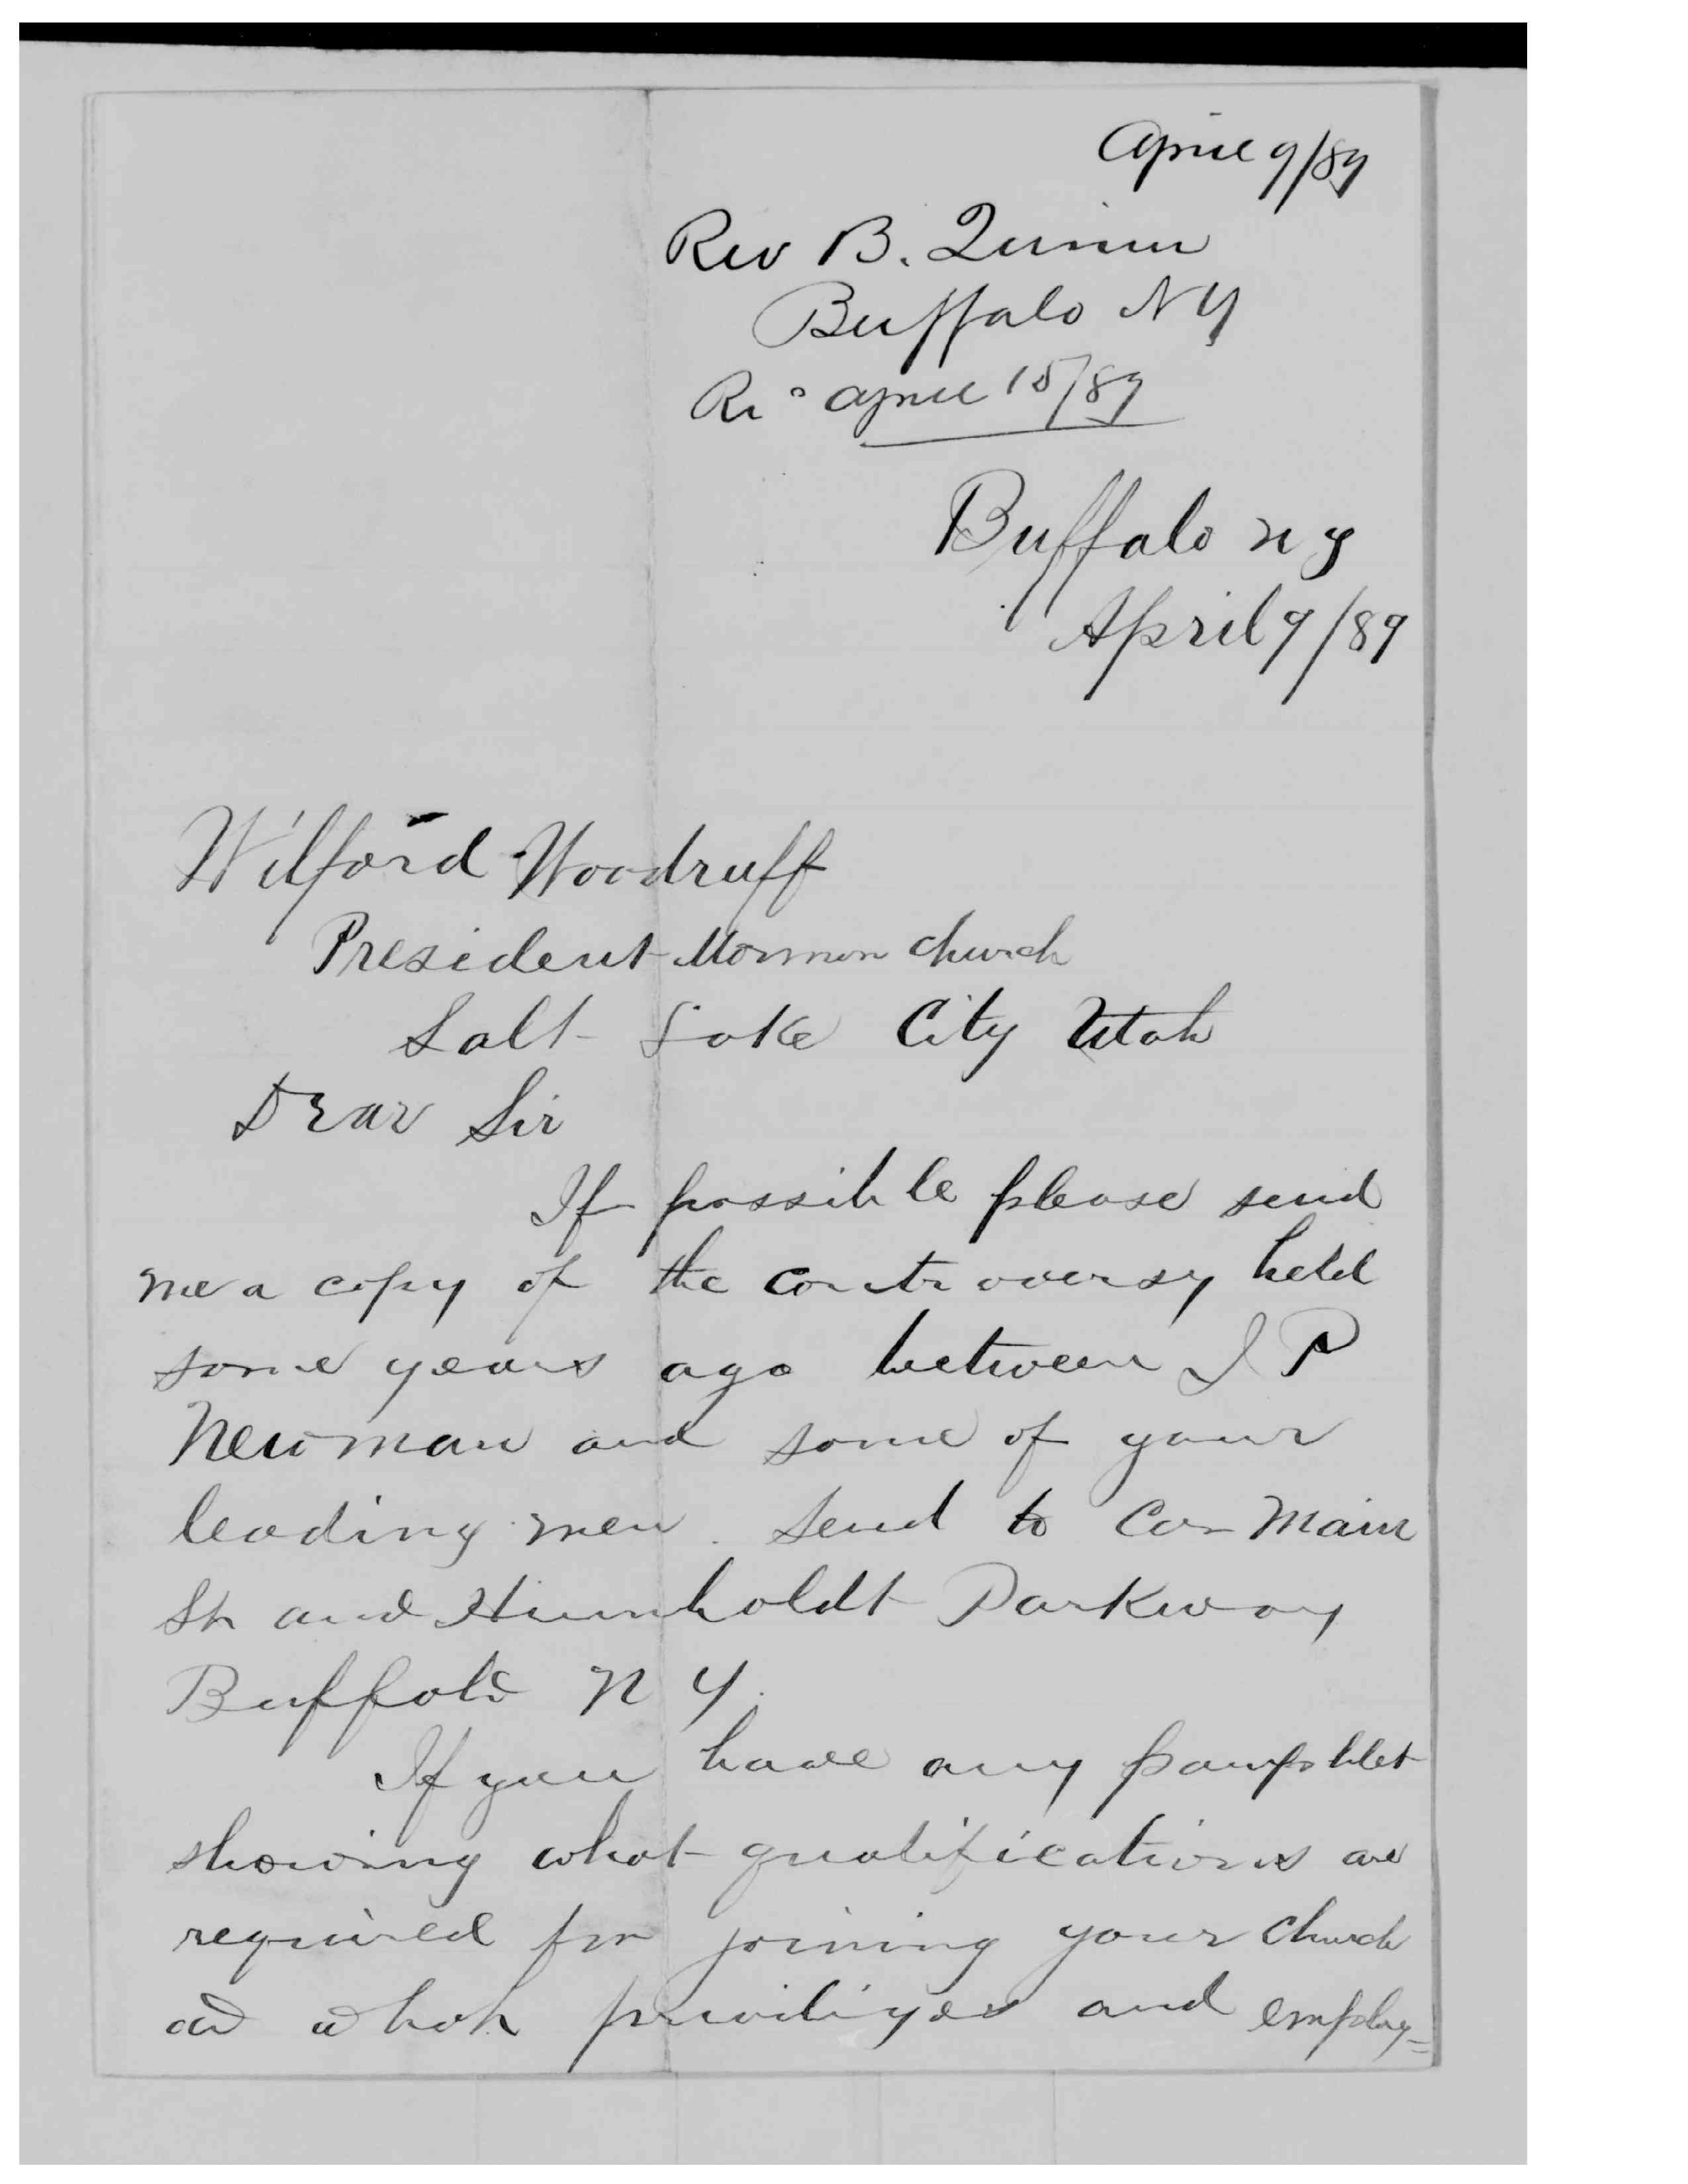 April 9/89
Rev B. Quinn
Buffalo NY
Re April 15/89
Buffalo NY
April 9/89
Wilford Woodruff
President Mormon Church
Salt Lake City Utah
Dear Sir
If possible please send
me a copy of the controversy held
some years ago between J P
Newman and some of your
leading men. Send to Cor Main
St and Humboldt Parkway
Buffalo N Y.
If you have any pamphlet
showing what qualifications are
required for joining your Church
and what priviliges and employ=